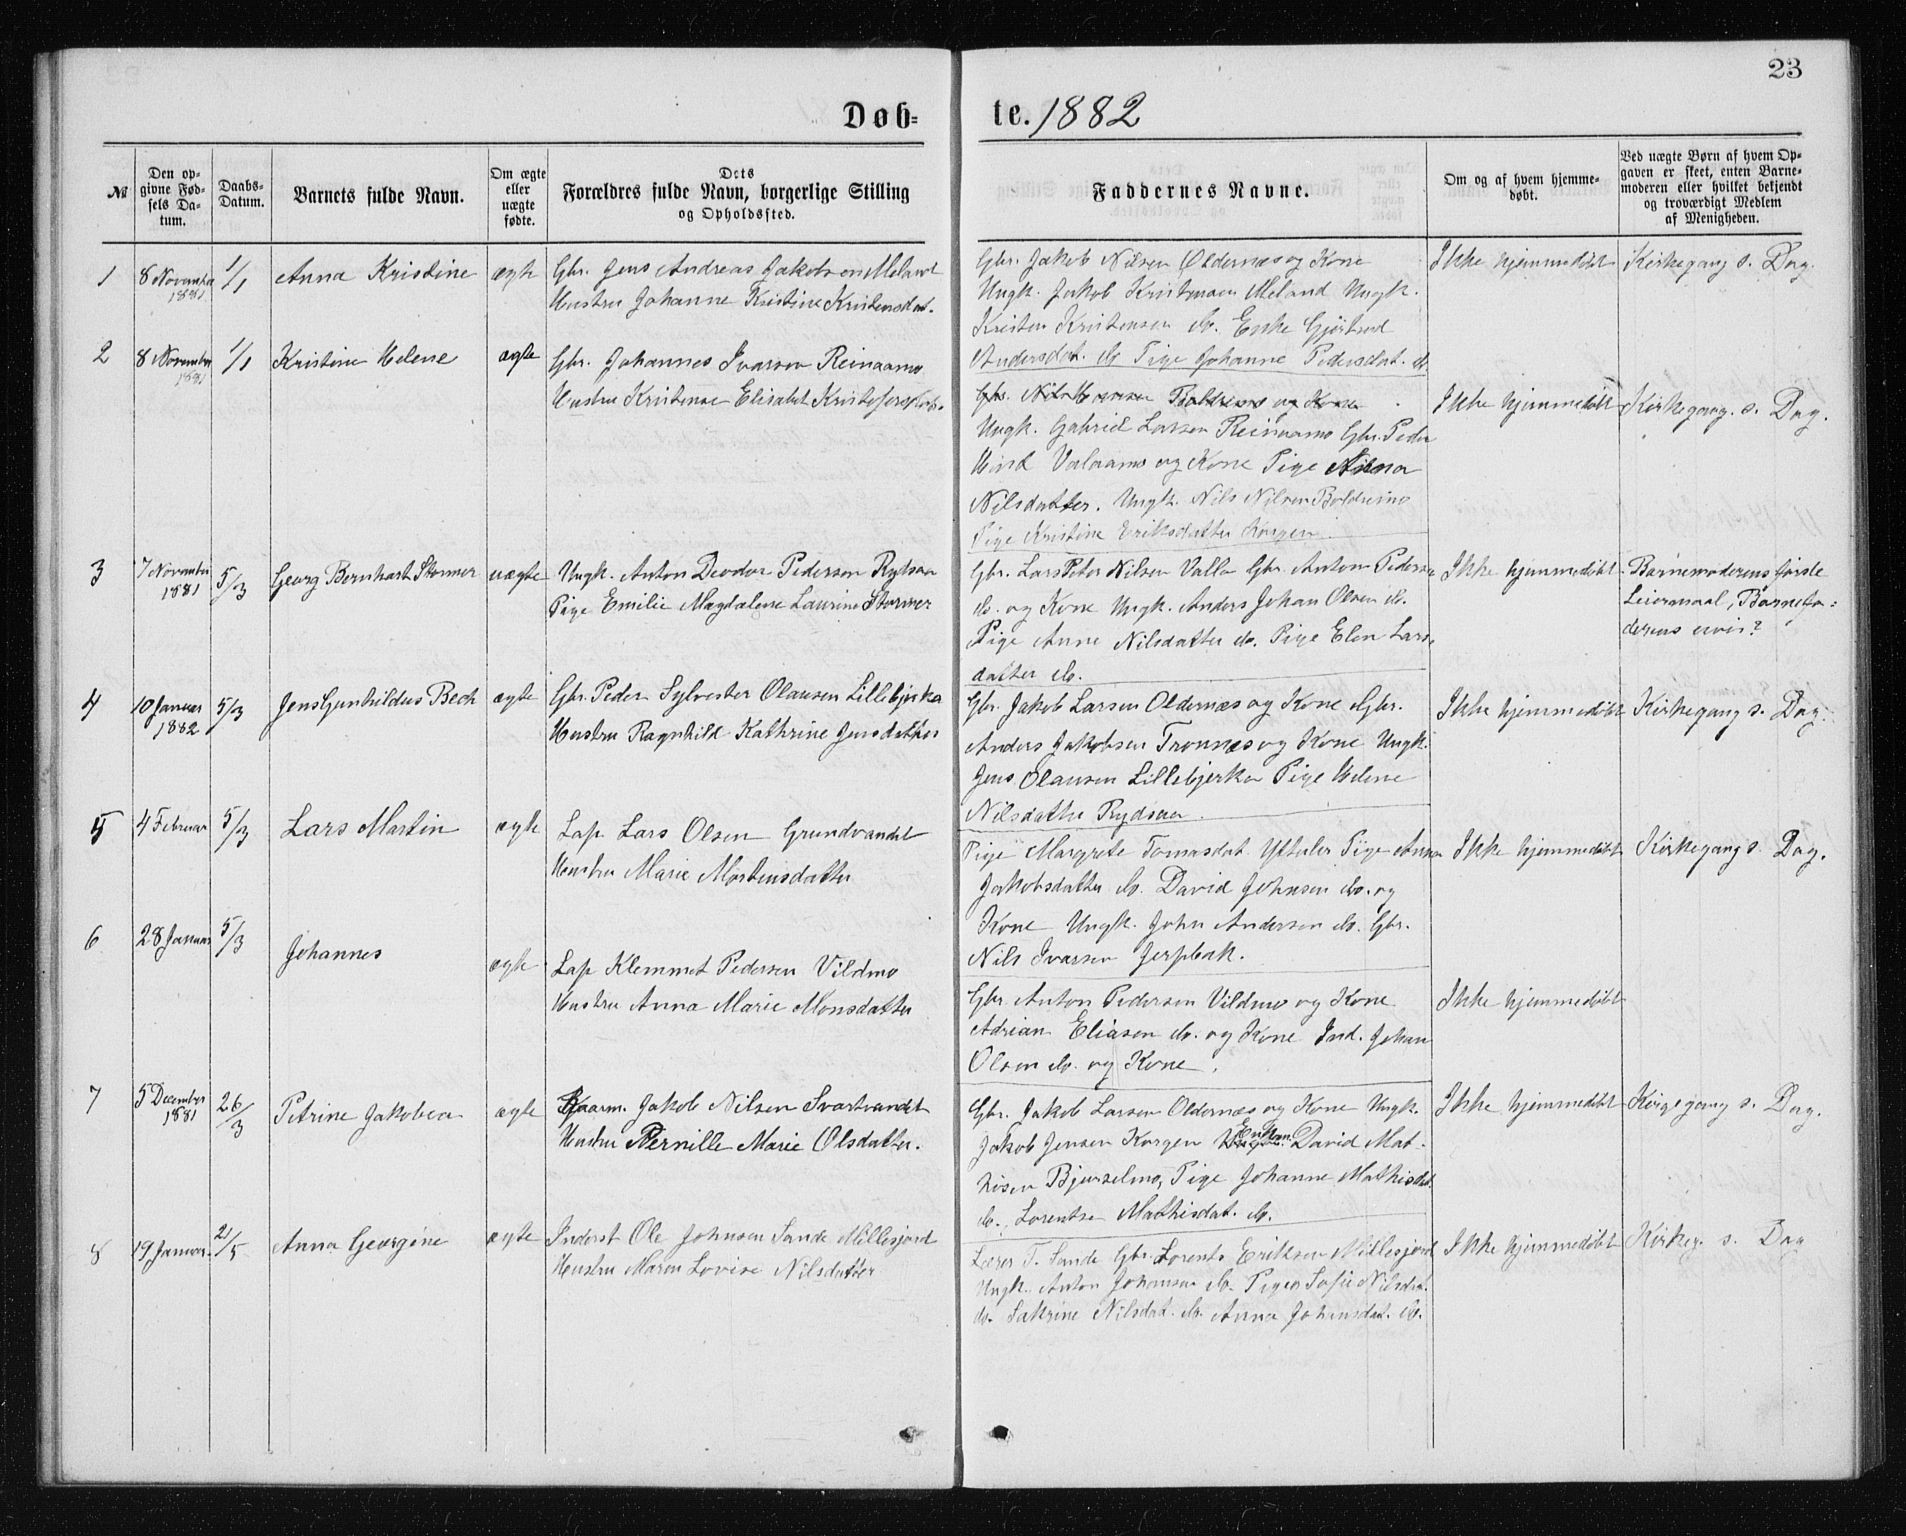 23
Døbte. 1882
№
Den opgivne Fødsels Datum.
Daabs-Datum.
Barnets fulde Navn.
Om ægte eller uægte fødte.
Dets Forældres fulde Navn, borgerlige Stilling og Opholdssted.
Faddernes Navne.
Om og af hvem hjemmedøbt.
Ved uægte Børn af hvem Opgaven er skeet, enten Barnemoderen eller hvilket bekjendt og troværdigt Medlem af Menigheden.
1
8 November 1881
1/1
Anna Kristine
ægte
Gbr. Jens Andreas Jakobsen Meland
Hustru Johanne Kristine Kristensdat.
Gbr. Jakob Nilsen Oldernæs og Kone
Ungk. Jakob Kristensen Meland Ungk.
Kristen Kristensen do. Enke Gjertrud
Andersdat. do Pige Johanne Pedersdat. do
Ikke hjemmedøbt
Kirkegang s. Dag.
2
8 November 1881
1/1
Kristine Helene
ægte
Gbr. Johannes Ivarsen Reinaamo
Hustru Kristense Elisabet
Gbr. Nils og Kone
Ungk. Gabriel Larsen Reinaamo Gbr. Peder
Hind og Kone Pige
Nilsdatter. Ungk. Nils Nilsen
Pige Kristine Eriksdatter Korgen.
Ikke hjemmedøbt
Kirkegang. s. Dag.
3
7 November 1881
5/3
Georg Bernhart Stormer
uægte
Ungk. Anton Deodor Pedersen
Pige Emilie Magdalene Laurine Stormer
Gbr. Lars Peter Nilsen Valla Gbr. Anton Pedersen
do. og Kone Ungk. Anders Johan Olsen do.
Pige Anne Nilsdatter do. Pige Elen Lars-
datter do.
Ikke hjemmedøbt
Barnemoderens første
Leiermaal, Barnefa-
derens uvis?
4
10 Januar 1882
5/3
Jens Gunhildus Bech
ægte
Gbr. Peder Sylvester Olausen Lillebjerka
Hustru Ragnhild Kathrine Jensdatter
Gbr. Jakob Larsen Oldernæs og Kone Gbr.
Anders Jakobsen Tronnæs og Kone Ungk.
Jens Olausen Lillebjerka Pige Helene
Nilsdatter Rydsaa.
Ikke hjemmedøbt
Kirkegang s. Dag.
5
4 Februar
5/3
Lars Martin
ægte
Lap Lars Olsen Grundvandet
Hustru Marie Mortensdatter
Pige Margrete Tomasdat. Pige Anna
Jakobsdatter do. David Johnsen do. og
Kone Ungk. John Andersen do. Gbr.
Nils Ivarsen Jerpbak.
Ikke hjemmedøbt
Kirkegang s. Dag.
6
28 Januar
5/3
Johannes
ægte
Lap Klemmet Pedersen Vildmo
Hustru Anna Marie Monsdatter
Gbr. Anton Pedersen Vildmo og Kone
Adrian Eliasen do. og Kone Ind. Johan
Olsen do. og Kone.
Ikke hjemmedøbt
7
5 December 1881
26/3
Petrine Jakobea
ægte
Jakob Nilsen Svartvandet
Hustru Pernille Marie Olsdatter.
Gbr. Jakob Larsen Oldernæs og Kone Ungk.
Jakob Jensen Korgen Enkem. David Mat-
hisen Bjurselmo, Pige Johanne Mathisdat.
do. Lorentse Mathisdat. do.
Ikke hjemmedøbt
Kirkegang s. Dag.
8
19 Januar
21/5
Anna Georgine
ægte
Inderst Ole Johnsen Sande Millesjord
Hustru Maren Lovise Nilsdatter
Lærer T. Sande Gbr. Lorents Eriksen Millesjord
Ungk. Anton Johansen do. Piger Sofie Nilsdat.
do. Sakrine Nilsdat. do. Anna Johansdat. do.
Ikke hjemmedøbt
Kirkeg. s. Dag